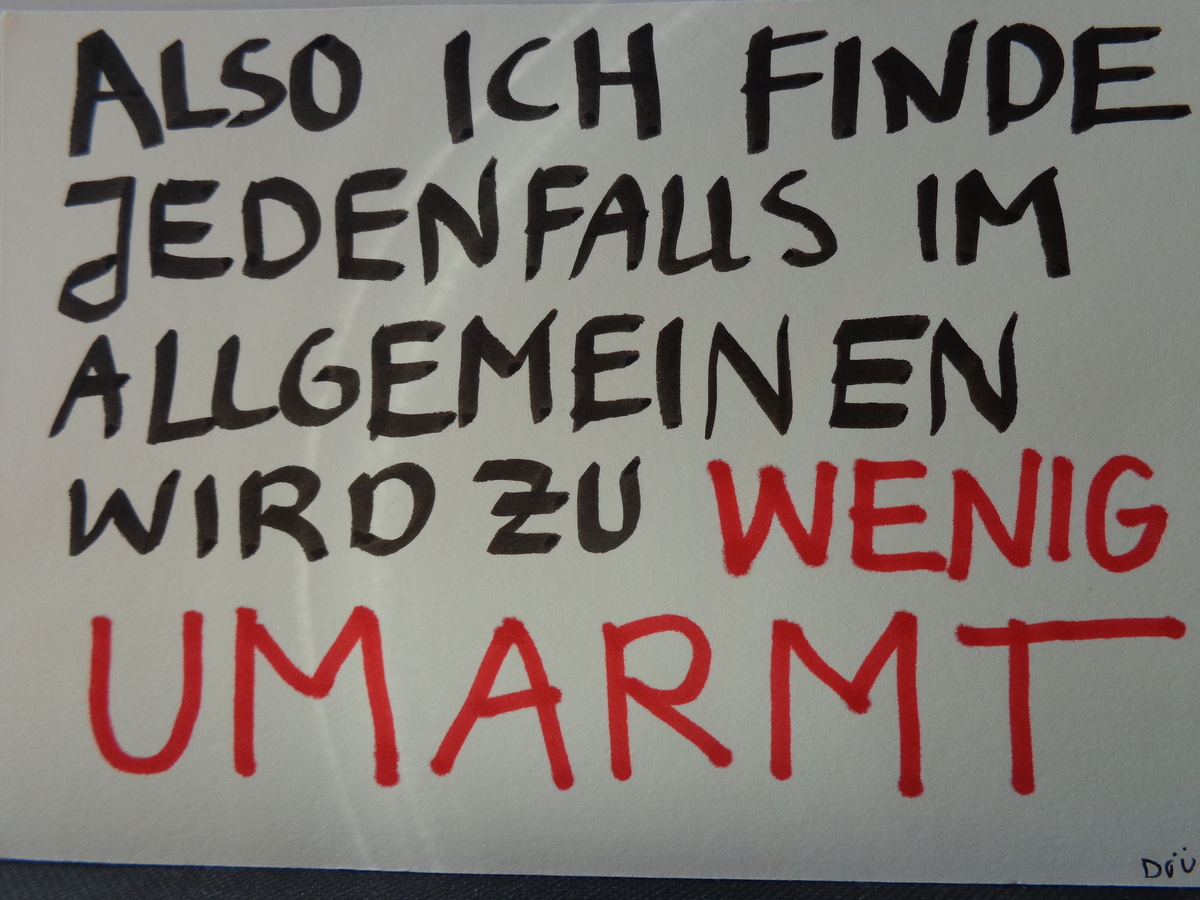 ALSO ICH FINDE
JEDENFALLS IM
ALLGEMEINEN
WIRD ZU WENIG
UMARMT